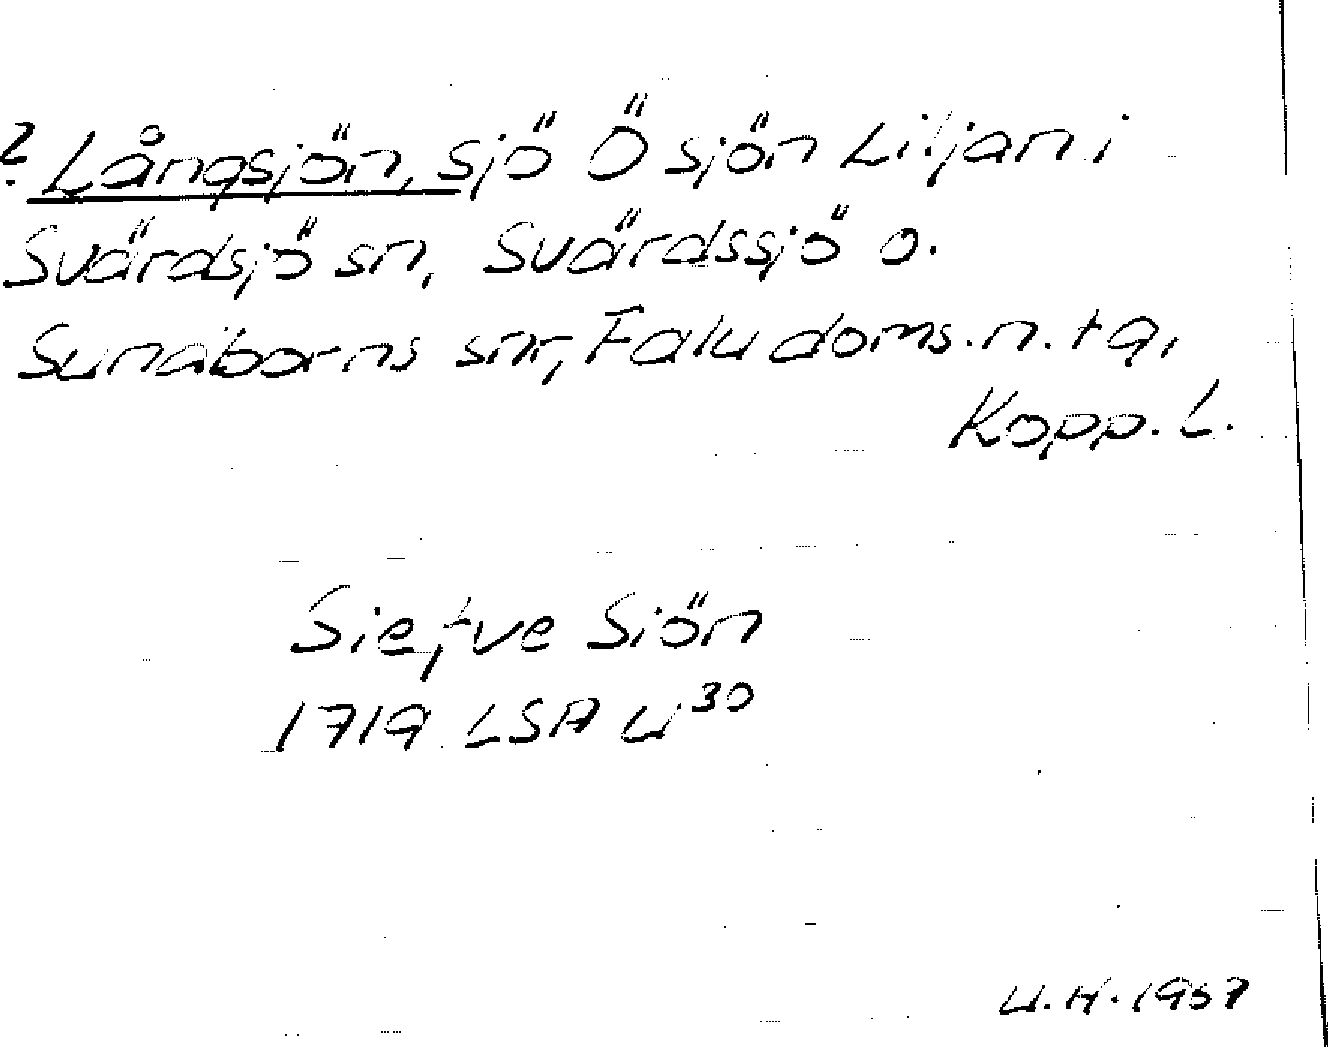 ? Långsjön, sjö Ö sjön Liljan i
Svärdsjö sn, Svärdssjö o.
Sundborns snr, Falu doms.n. tg,
Kopp. L.
Siefve Siön
1719 LSA U³⁰
U.H. 1957